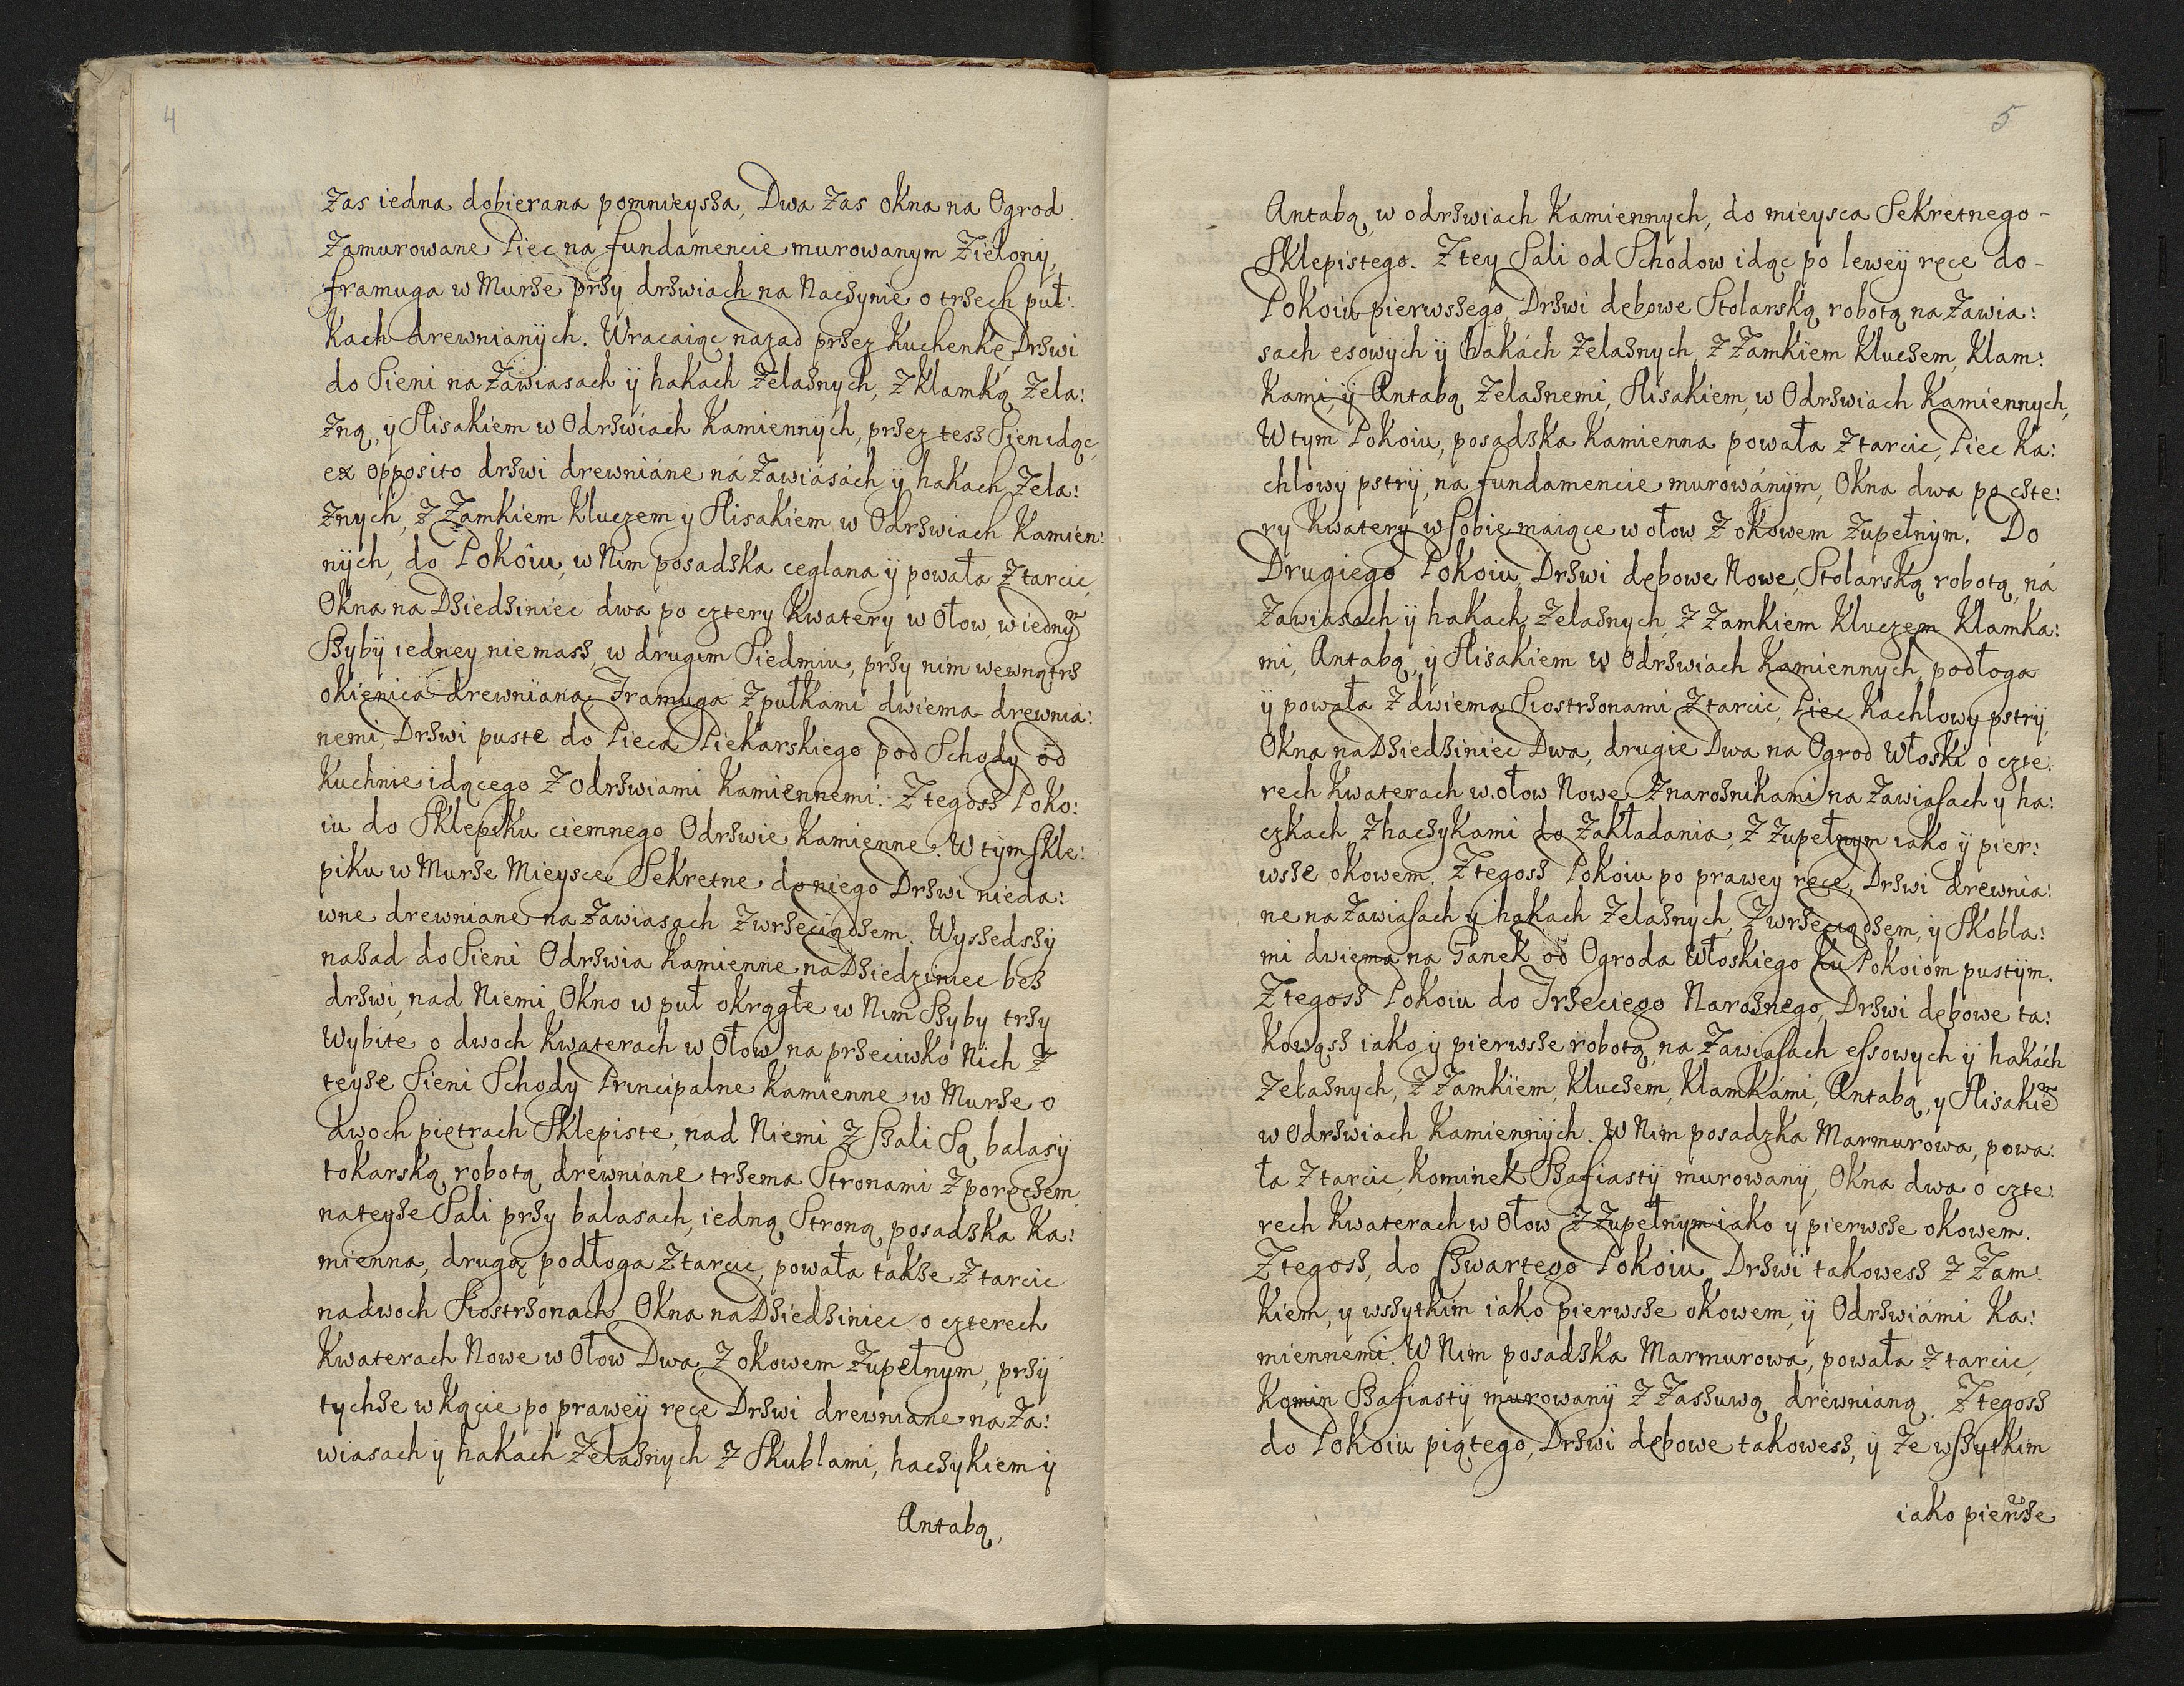 4
Zas iedna dobierana pomnieyssa, Dwa Zas okna na Ogrod
Zamurowane Piec na fundamencie murowanym Zielony,
framuga w Murze przy drzwiach na Naczynie o trzech puł:
kach drewnianÿch. Wracaiąc nazad przez Kuchenkę, Drzwi
do Sieni na Zawiasach ÿ hakach Zelaznych, Z Klamką Zela:
Zną, y Hisakiem w Odrzwiach Kamiennÿch, przez tesz Sien idąc,
ex opposito drzwi drewniáne ná Zawiásách ÿ hakach Zela:
Znych, Z Zamkiem Kluczem y Hisakiem w Odrzwiach Kamien:
nÿch, do Pokoiu, w Nim posadzka ceglana ÿ powała Z tarcic,
Okna na Dziedziniec dwa po cztery Kwatery w Ołow, w iednÿ̃
Szybÿ iedney niemasz, w drugim Siedmiu, przy nim wewnątrz
okienica drewniana, Framuga Z pułkami dwiema drewnia:
nemi, Drzwi puste do Pieca Piekarskiego pod Schody od
Kuchnie idącego Z odrzwiami Kamiennemi. Z tegosz Poko:
iu do Sklepiku ciemnego Odrzwie Kamienne. W tÿm Skle:
piku w Murze Mieysce Sekretne do niego Drzwi nieda:
wne drewniane na Zawiasach Z wrzeciądzem. Wyszedszÿ
nazad do Sieni Odrzwia Kamienne na Dziedziniec bez
drzwi, nad Niemi Okno w puł okrągłe w Nim Szyby trzy
Wybite o dwoch Kwaterach w Ołow na przeciwko Nich Z
teyze Sieni Schody Principalne Kamienne w Murze o
dwoch piętrach Sklepiste, nad Niemi Z Szali Są balasÿ
tokarską robotą drewniane trzema Stronami Z poręczem
na teyze Sali przy balasach, iedną Stroną posadzka Ka:
mienna, drugą podłoga Z tarcic, powała takze Z tarcic
na dwoch Siostrzonach, Okna na Dziedziniec o czterech
Kwaterach Nowe w Ołow Dwa, Z okowem Zupełnym, przÿ
tychze w kącie po prawey ręce Drzwi drewniane na Za:
wiasach ÿ hakach Zelaznych Z Skublami, haczykiem ÿ
Antabą,
5
Antabą, w odrzwiach Kamiennych, do mieysca Sekretnego -
Sklepistego. Z tey Sali od Schodow idąc po lewey ręce do -
Pokoiu pierwszego, Drzwi dębowe Stolarską robotą na Zawia:
sach esowych ÿ hakách Zelaznych, Z Zamkiem Kluczem, Klam:
kami, ÿ Antabą Zelaznemi, Hisakiem, w Odrzwiach Kamiennych,
W tym Pokoiu, posadzka Kamienna powała Z tarcic, Piec ka:
chlowy pstrÿ, na fundamencie murowánÿm, Okna dwa po czte:
ry Kwatery w Sobie maiące w ołow Z okowem Zupełnÿm. Do
Drugiego Pokoiu, Drzwi dębowe Nowe, Stolarską robotą, ná
Zawiasach ÿ hakach Zelaznych, Z Zamkiem Kluczem Klamka:
mi, Antabą, ÿ Hisakiem w Odrzwiach Kamiennych, podłoga
ÿ powała Z dwiema Siostrzonami Z tarcic, Piec Kachlowy pstrÿ,
Okna na Dziedziniec Dwa, drugie Dwa na Ogrod Włoski o czte:
rech Kwaterach w ołow Nowe Z naroznikami na Zawiasach y ha:
czkach, Z haczykami do Zakładania, Z Zupełnym iako ÿ pier:
wsze okowem. Z tegosz Pokoiu po prawey ręce, Drzwi drewnia:
ne na Zawiasach y hakach Zelaznych, Z wrzeciądzem, ÿ Skobla:
mi dwiema na Ganek od Ogroda Włoskiego ku Pokoiom pustÿm.
Z tegosz Pokoiu do Trzeciego Naroznego, Drzwi dębowe ta:
kowąsz iako ÿ pierwsze robotą, na Zawiasach essowych ÿ hakách
Zelaznych, Z Zamkiem, Kluczem, Klamkámi, Antabą, y Hisakiẽ
w Odrzwiach Kamiennych. W Nim posadzka Marmurowa, powa:
ła Z tarcic, Kominek Szafiastÿ murowanÿ, Okna dwa o czte:
rech Kwaterach w Ołow Z Zupełnym iako y pierwsze okowem.
Z tegosz, do Czwartego Pokoiu Drzwi takowesz Z Zam:
kiem, y wszytkim iako pierwsze okowem, ÿ Odrzwiámi Ka:
miennemi. W Nim posadzka Marmurowa, powała Z tarcic,
Komin Szafiastÿ murowanÿ Z Zaszuwą drewnianą. Z tegosz
do Pokoiu piątego, Drzwi dębowe takowesz, ÿ Ze wszytkim
iako pierwsze